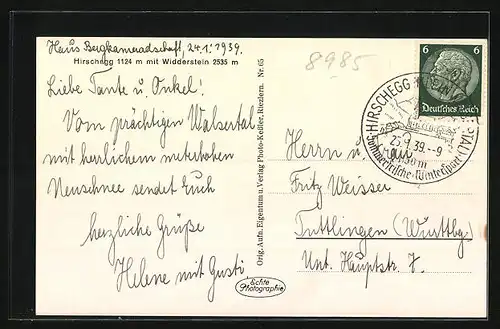 Haus Bergkameradschaft, 24.1.1939.
Hirschegg 1124 m mit Widderstein 2535 m
Liebe Tante u. Onkel!
Vom prächtigen Walsertal
mit herlichem meterhohen
Neuschnee sendet Euch
herzliche Grüße
Helene mit Gusti
Orig. Aufn. Eigentum u. Verlag Photo-Keßler, Riezlern. Nr. 65
Echte
Photographie
8985
6 6
Deutsches Reich
HIRSCHEGG
25.1.39.-9
Sommerfrische-Wintersport
Herrn u. Frau
Fritz Weisser
Tuttlingen (Württbg.)
Unt. Hauptstr. 7.